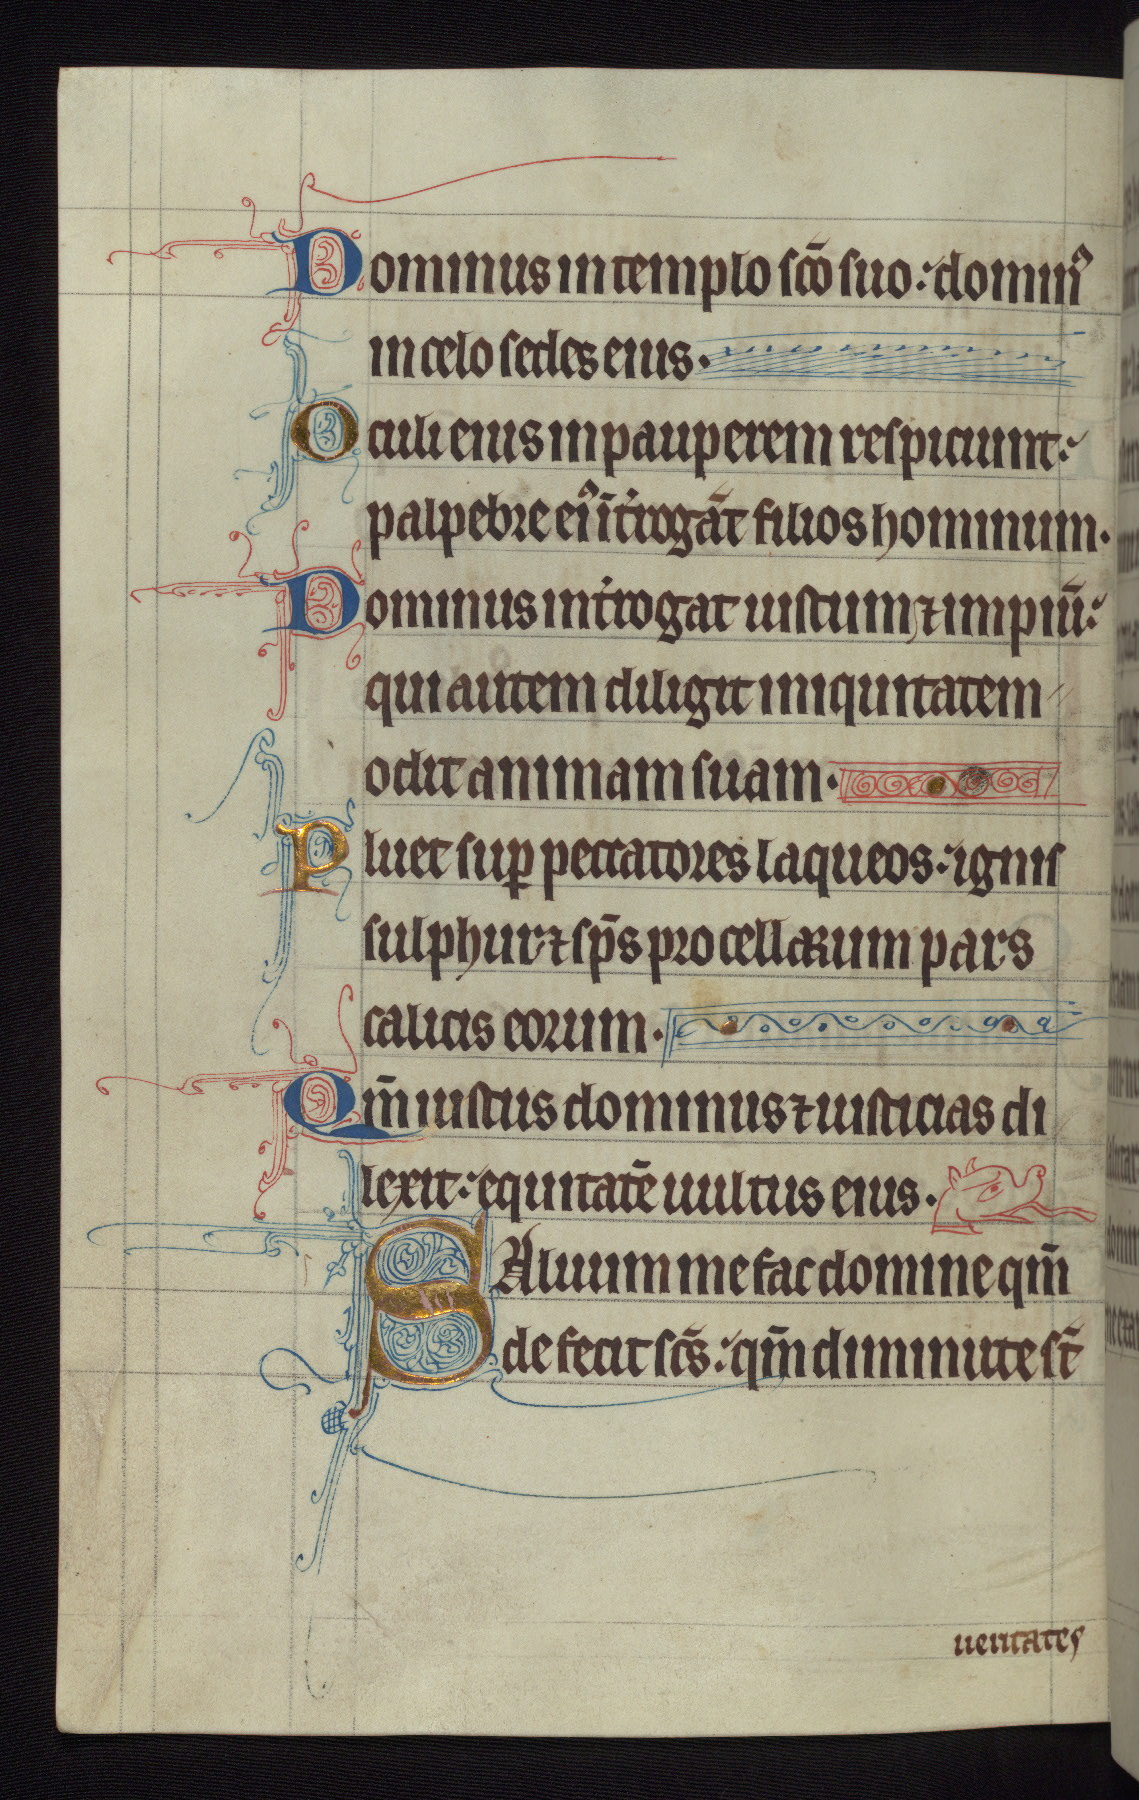 Dominus in templo sc̄o suo: dominꝰ
in celo sedes eius.
Oculi eius in pauperem respiciunt:
palpebre eiꝰ īt̉rogāt filios hominum.
Dominus int̉rogat iustum ⁊ impiū:
qui autem diligit iniquitatem
odit animam suam.
Pluet suꝑ peccatores laqueos: ignis
sulphur ⁊ sp̄s procellarum pars
calicis eorum.
Qm̄ iustus dominus ⁊ iusticias di
lexit: equitatē uultus eius.
Saluum me fac domine qm̄
defecit sc̄s: qm̄ diminute st̄
ueritates